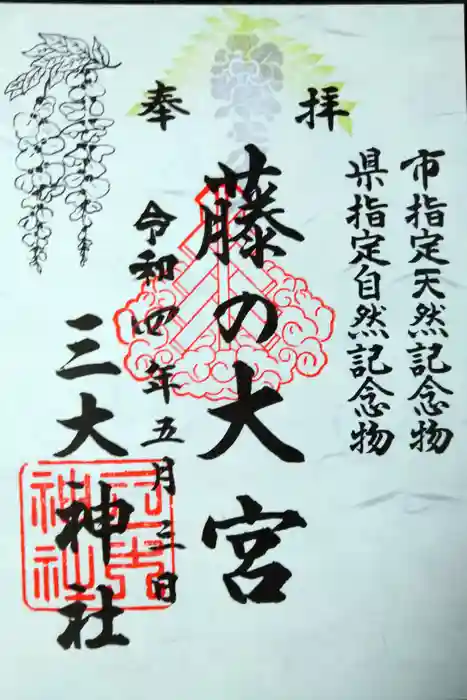 市指定天然記念物
県指定自然記念物
奉拝
藤の大宮
令和四年五月三日
三大神社
三大神社